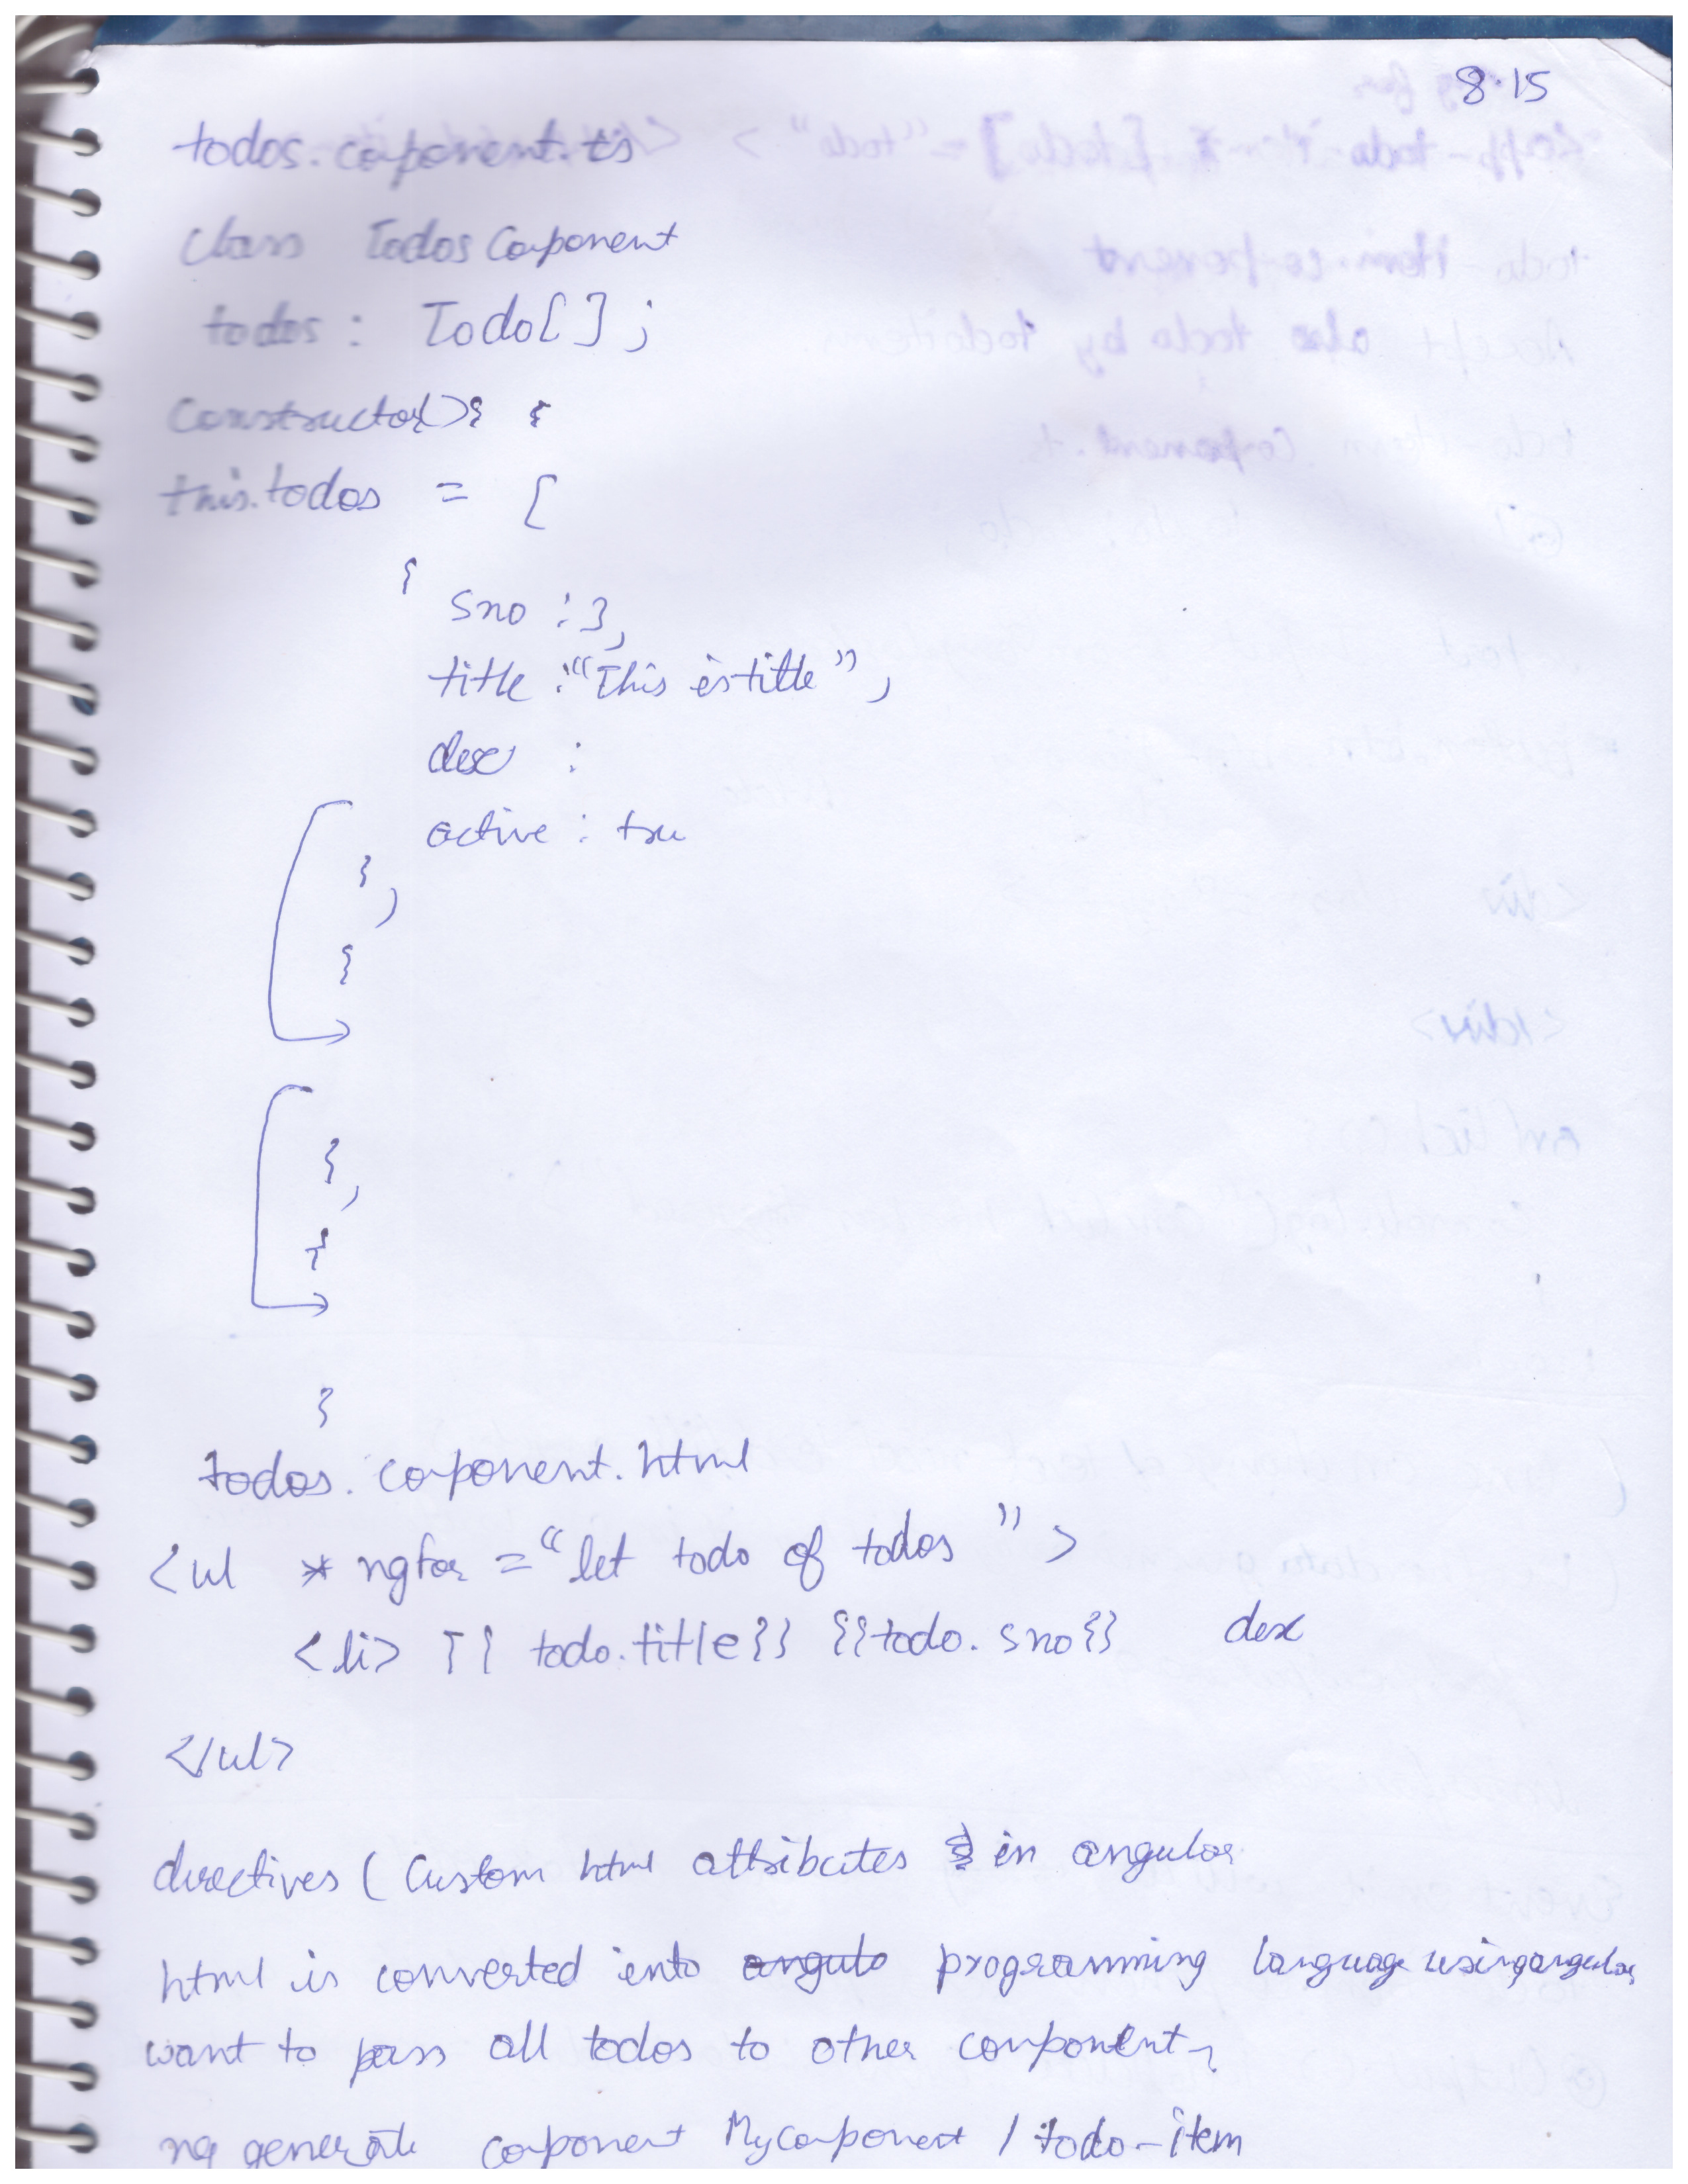 8.15
todos.coponent.ts
class TodosCoponent
todos : Todo[];
Constructor(){ {
this.todos = [
{
sno : 3,
title : "This is title",
desc :
active : tru
},
{
},
{
}
todos.coponent.html
<ul *ngfor = "let todo of todos ">
<li> {{ todo.title}} {{todo.sno}} desc
</ul>
directives ( Custom html attributes in angular
html is converted into angulo programming language using angular
want to pass all todos to other component
ng generate coponent MyCoponent / todo-item